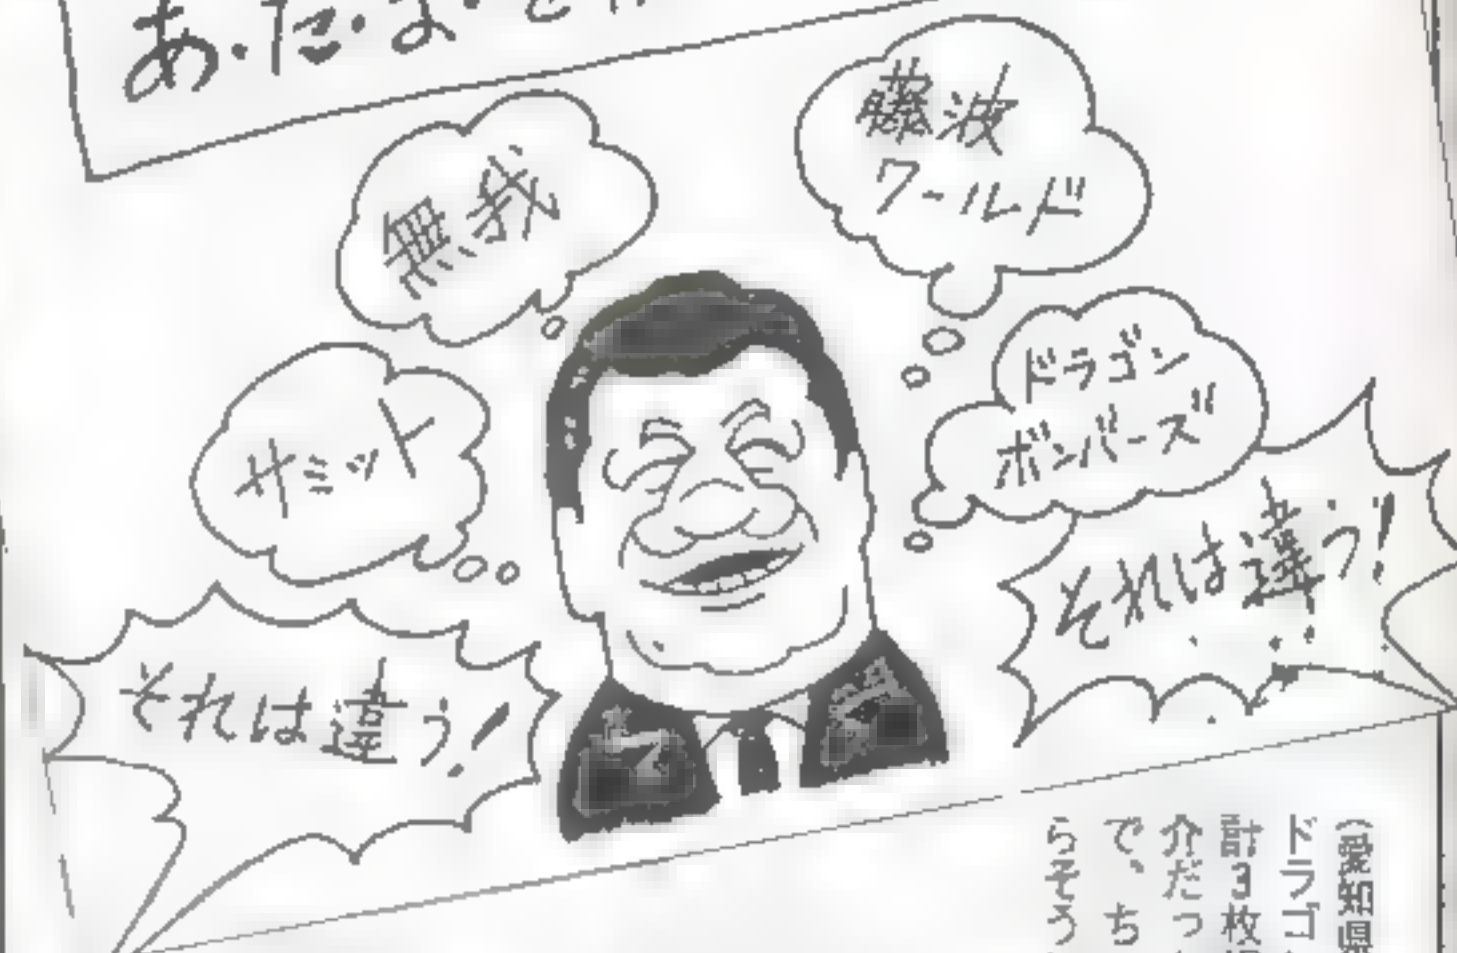 あ・た・ま・
無我
藤波
ワールド
サミット
ドラゴン
ボンバーズ
それは違う!
それは違う!
(愛知県
ドラゴ
計3枚
介だっ
で、ち
らそう